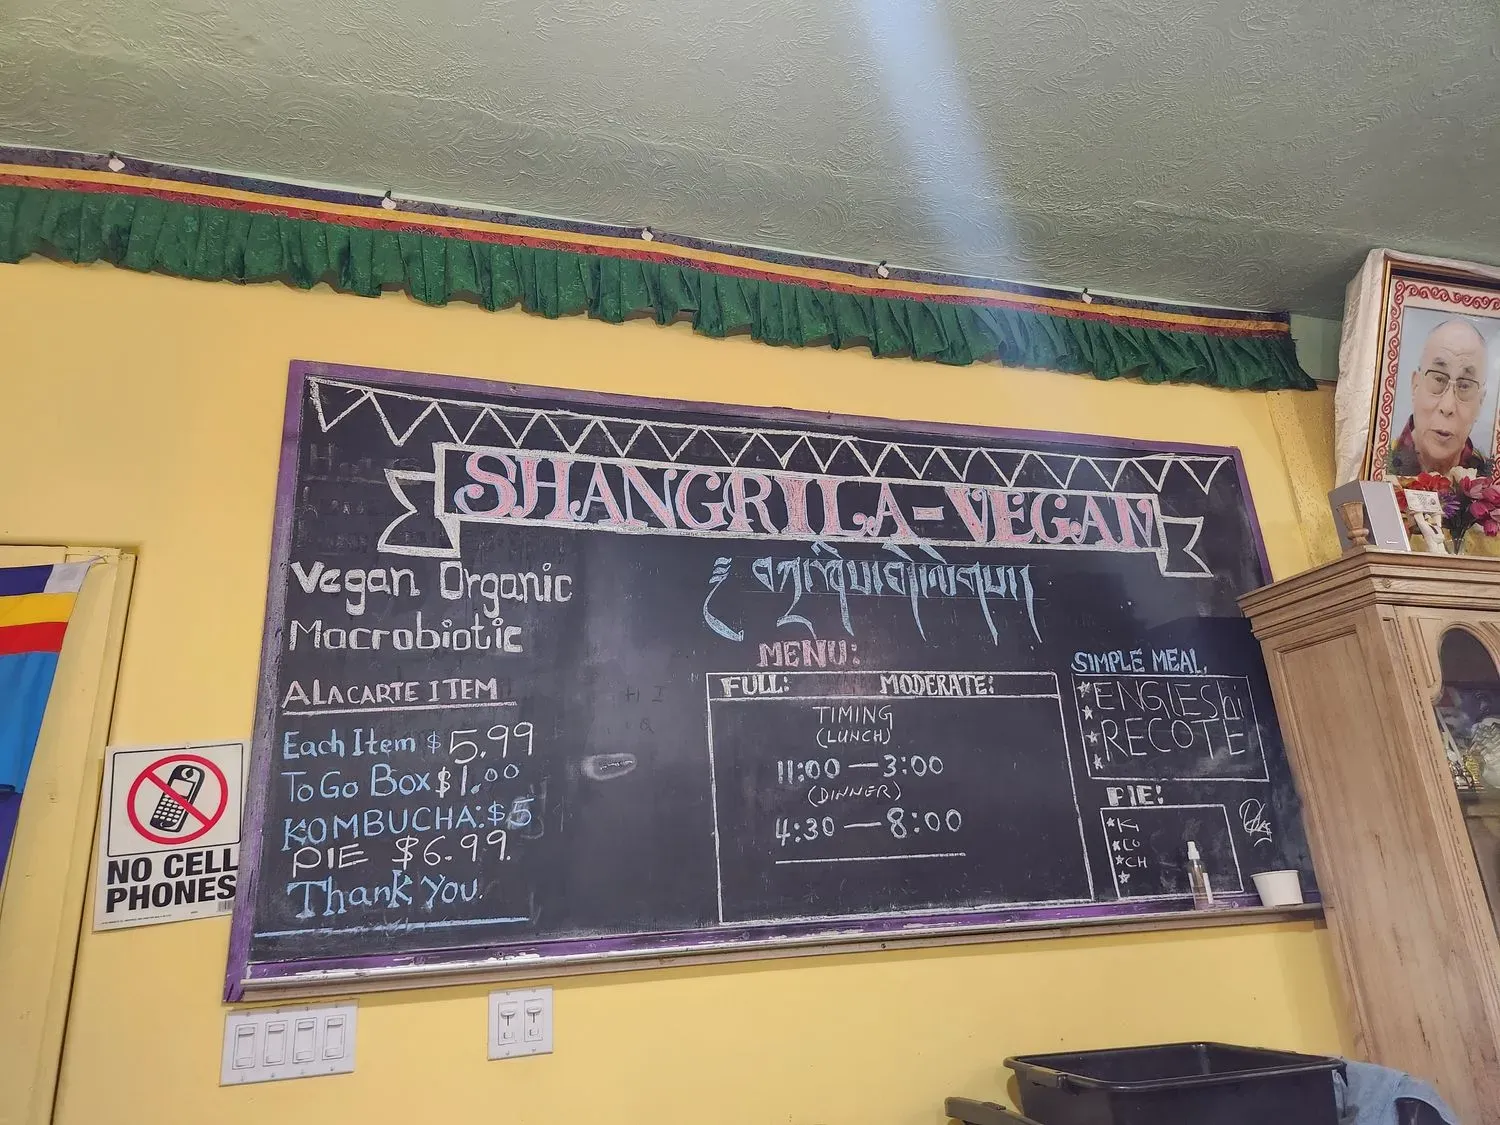 SHANGRILA-VEGAN
Vegan Organic
Macrobiotic
ALACARTE ITEM
Each Item $5.99
To Go Box $1.00
KOMBUCHA: $5
PIE $6.99.
Thank You.
MENU:
FULL: MODERATE:
TIMING
(LUNCH)
11:00 — 3:00
(DINNER)
4:30 — 8:00
SIMPLE MEAL.
PIE:
CH
NO CELL
PHONES